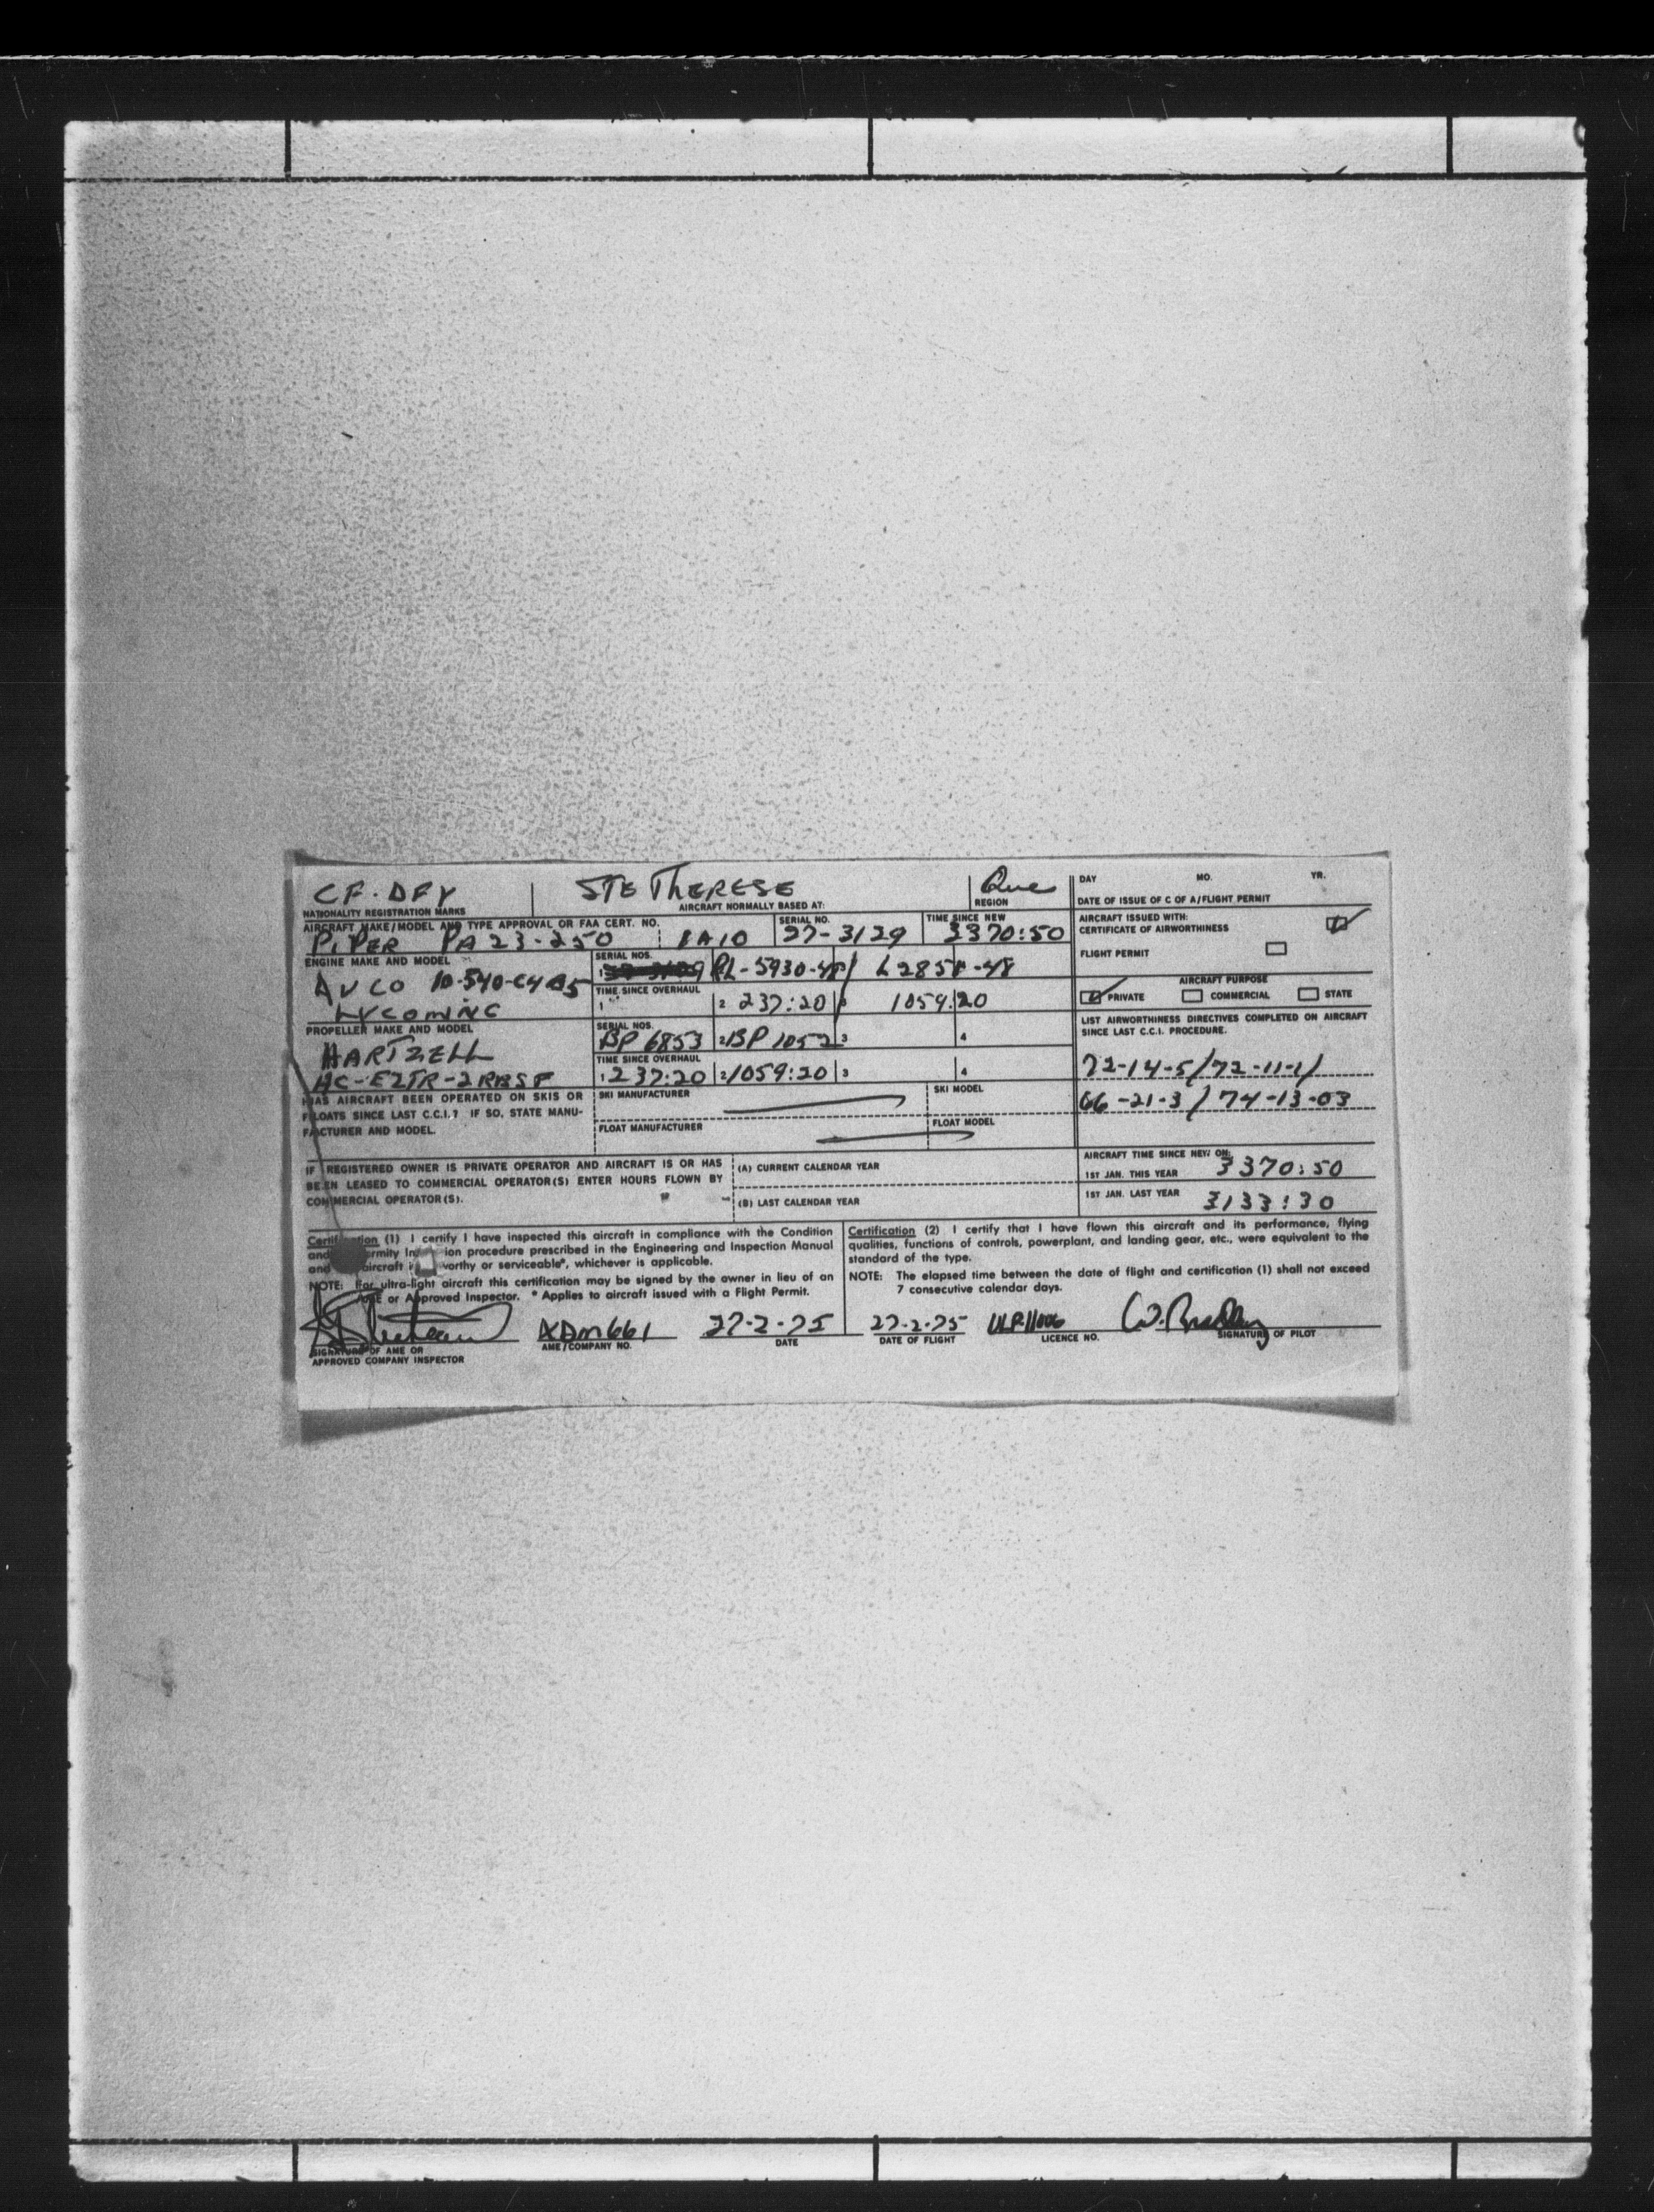 CF-DFY STE THERESE Que DAY MO. YR.
NATIONALITY REGISTRATION MARKS AIRCRAFT NORMALLY BASED AT: REGION DATE OF ISSUE OF C OF A/FLIGHT PERMIT
AIRCRAFT MAKE/MODEL AND TYPE APPROVAL OR FAA CERT. NO. SERIAL NO. TIME SINCE NEW AIRCRAFT ISSUED WITH:
PIPER PA 23-250 1A10 27-3129 3370:50 CERTIFICATE OF AIRWORTHINESS
ENGINE MAKE AND MODEL SERIAL NOS. FLIGHT PERMIT
AVCO IO-540-C4B5 RL-5930-48/ L285-48
TIME SINCE OVERHAUL AIRCRAFT PURPOSE
LYCOMING 1 2 237:20 3 1059:20 PRIVATE COMMERCIAL STATE
PROPELLER MAKE AND MODEL SERIAL NOS. LIST AIRWORTHINESS DIRECTIVES COMPLETED ON AIRCRAFT
SINCE LAST C.C.I. PROCEDURE.
HARTZELL BP 6853 2 BP 1052 3 4
TIME SINCE OVERHAUL
HC-E2TR-2RBSF 1 237:20 2 1059:20 3 4 72-14-5/72-11-1/
HAS AIRCRAFT BEEN OPERATED ON SKIS OR SKI MANUFACTURER SKI MODEL
FLOATS SINCE LAST C.C.I.? IF SO, STATE MANU- 66-21-3/74-13-03
FACTURER AND MODEL. FLOAT MANUFACTURER FLOAT MODEL
IF REGISTERED OWNER IS PRIVATE OPERATOR AND AIRCRAFT IS OR HAS (A) CURRENT CALENDAR YEAR AIRCRAFT TIME SINCE NEW ON:
BEEN LEASED TO COMMERCIAL OPERATOR(S) ENTER HOURS FLOWN BY 1ST JAN. THIS YEAR 3370:50
COMMERCIAL OPERATOR(S). (B) LAST CALENDAR YEAR 1ST JAN. LAST YEAR 3133:30
Certification (1) I certify I have inspected this aircraft in compliance with the Condition
and rmity In ion procedure prescribed in the Engineering and Inspection Manual
and aircraft i worthy or serviceable*, whichever is applicable.
NOTE: For ultra-light aircraft this certification may be signed by the owner in lieu of an
AME or Approved Inspector. * Applies to aircraft issued with a Flight Permit.
Certification (2) I certify that I have flown this aircraft and its performance, flying
qualities, functions of controls, powerplant, and landing gear, etc., were equivalent to the
standard of the type.
NOTE: The elapsed time between the date of flight and certification (1) shall not exceed
7 consecutive calendar days.
XDM661 27-2-75 27-2-75 W. Bradley
SIGNATURE OF AME OR AME/COMPANY NO. DATE DATE OF FLIGHT LICENCE NO. SIGNATURE OF PILOT
APPROVED COMPANY INSPECTOR